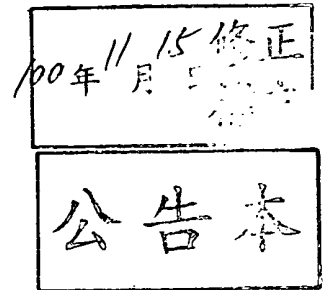 100年11月15日修正
公告本